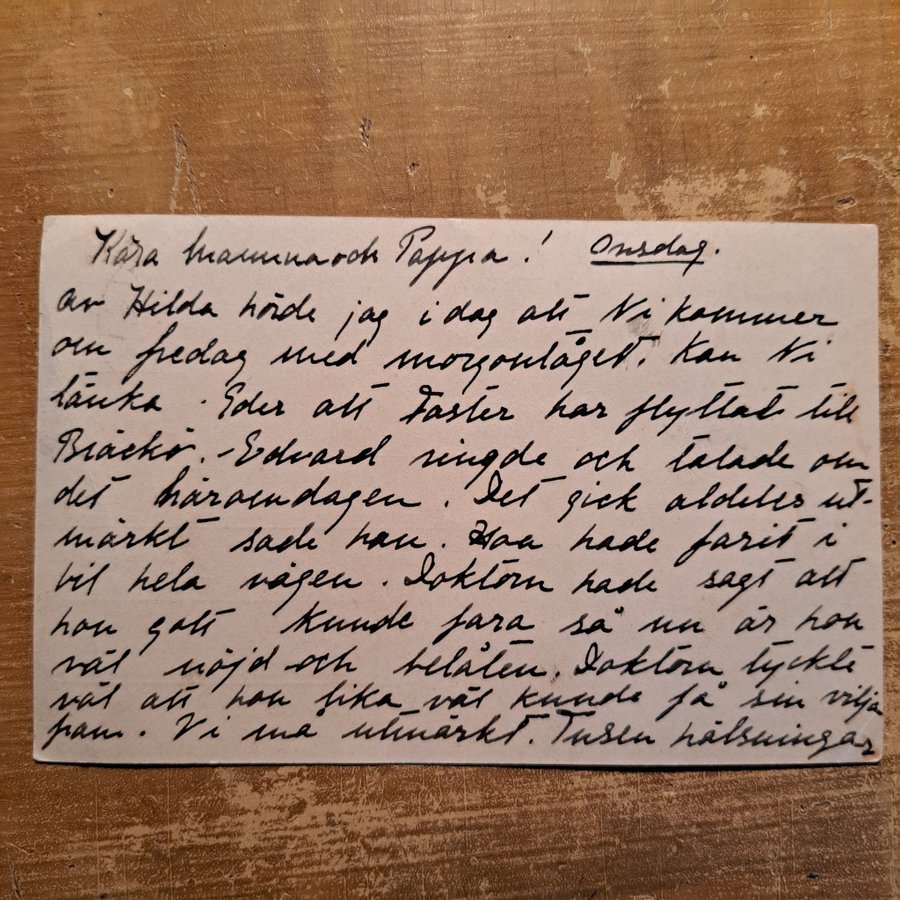 Kära Mamma och Pappa! Onsdag.
Av Hilda hörde jag i dag att Ni kommer
om fredag med morgontåget. Kan Ni
tänka Eder att Faster har flyttat till
Bräckö. - Edvard ringde och talade om
det häromdagen. Det gick aldeles ut-
märkt sade han. Hon hade farit i
bil hela vägen. Doktorn hade sagt att
hon gott kunde fara så nu är hon
väl nöjd och belåten. Doktorn tyckte
väl att hon lika väl kunde få sin vilja
fram. Vi må utmärkt. Tusen hälsningar